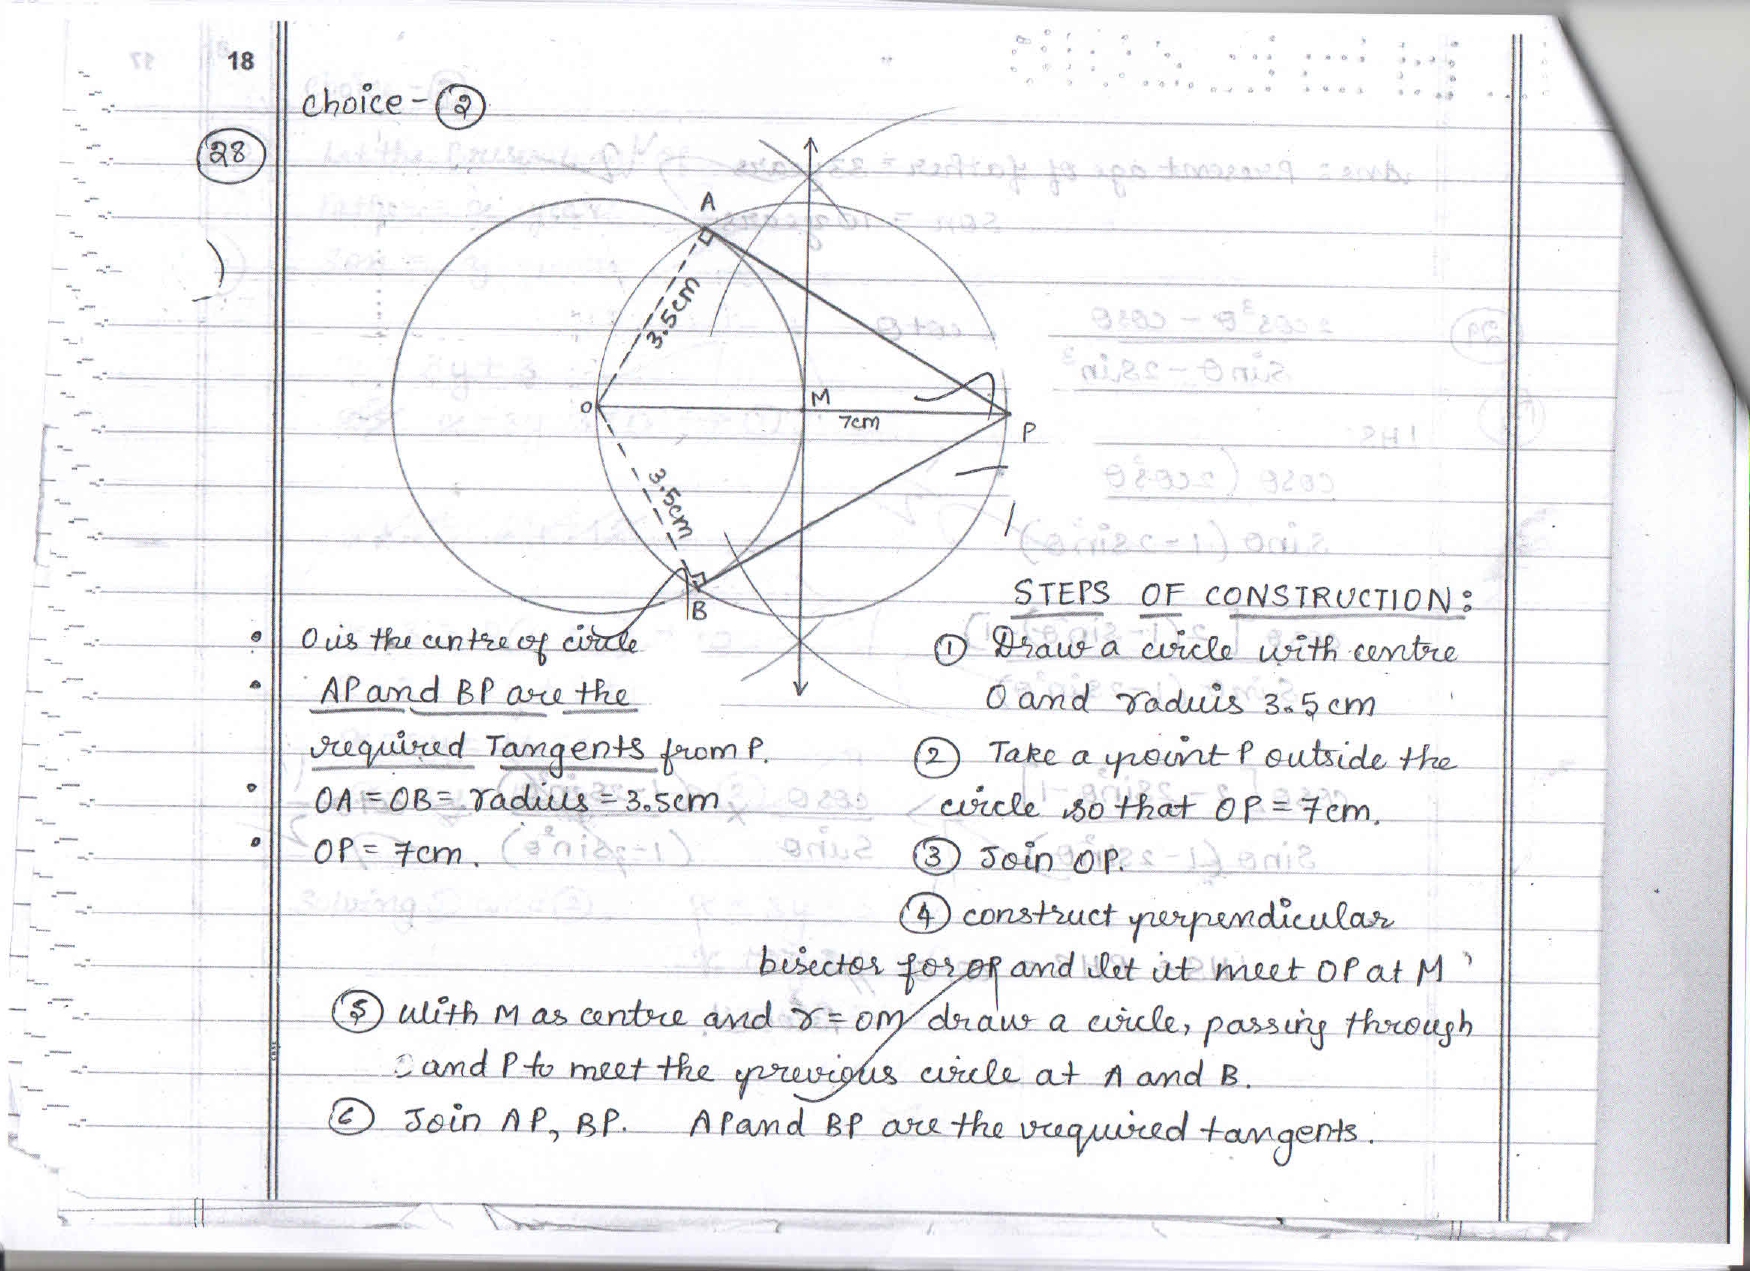 18
Choice - 2
28
A
3.5cm
O
M
7cm
P
3.5cm
B
O is the centre of circle
AP and BP are the
required Tangents from P.
OA = OB = radius = 3.5cm
OP = 7cm.
STEPS OF CONSTRUCTION:
① Draw a circle with centre
O and raduis 3.5 cm
② Take a point P outside the
circle so that OP = 7cm.
③ Join OP.
④ construct perpendicular
bisector for OP and let it meet OP at M
⑤ With M as centre and r = OM draw a circle, passing through
O and P to meet the previous circle at A and B.
⑥ Join AP, BP. AP and BP are the required tangents.